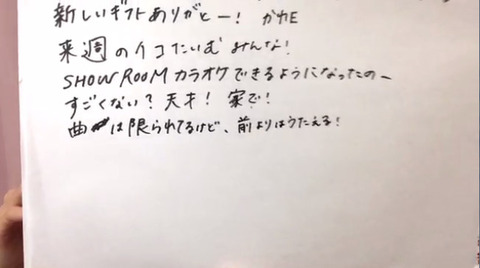 新しいギフトありがとー! かわE
来週のイコたいむみんな!
SHOWROOMカラオケできるようになったのー
すごくない?天才!家で!
曲は限られてるけど、前よりはうたえる!